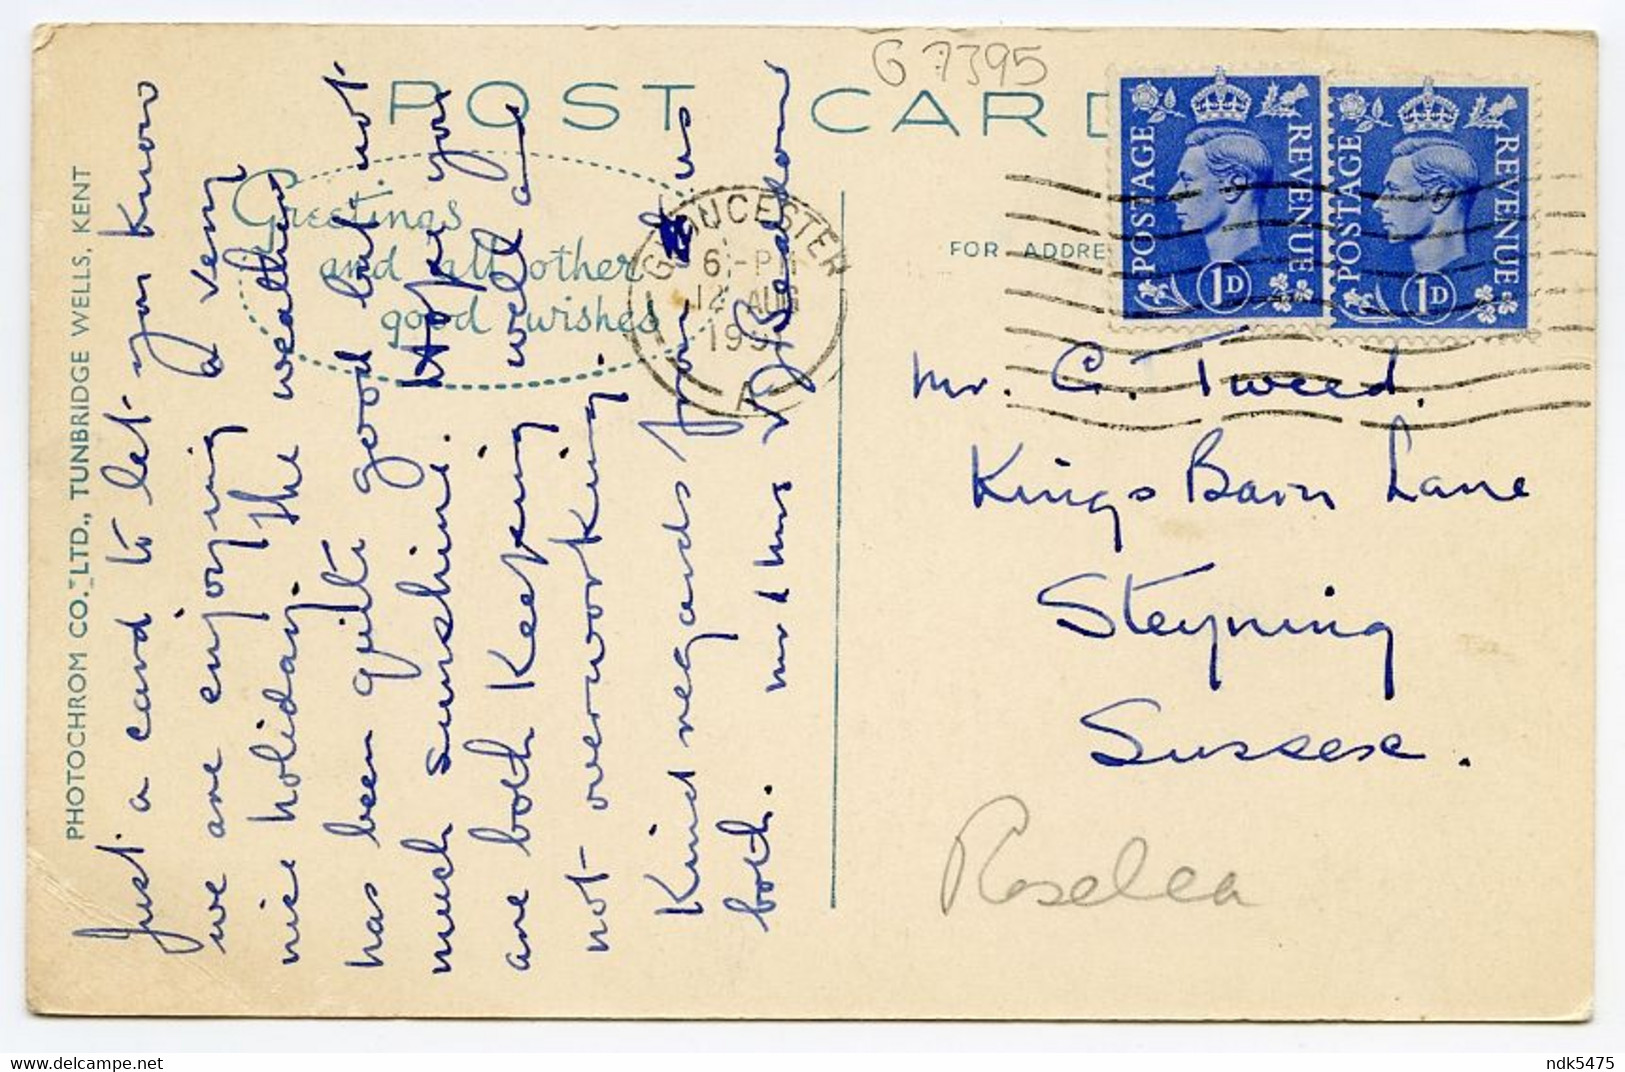 G 7395
POST CARD
PHOTOCHROM CO. LTD., TUNBRIDGE WELLS, KENT
Greetings
and all other
good wishes
FOR ADDRE
GLOUCESTER
6 - PM
12 AUG
POSTAGE REVENUE
1D
POSTAGE REVENUE
1D
Just a card to let you know
we are enjoying a very
nice holiday. The weather
has been quite good but not
much sunshine. Hope you
are both keeping well and
not overworking.
Kind regards from us
both. Mr & Mrs
Mr. C. Tweed.
Kings Barn Lane
Steyning
Sussex.
Roselea
ndk5475